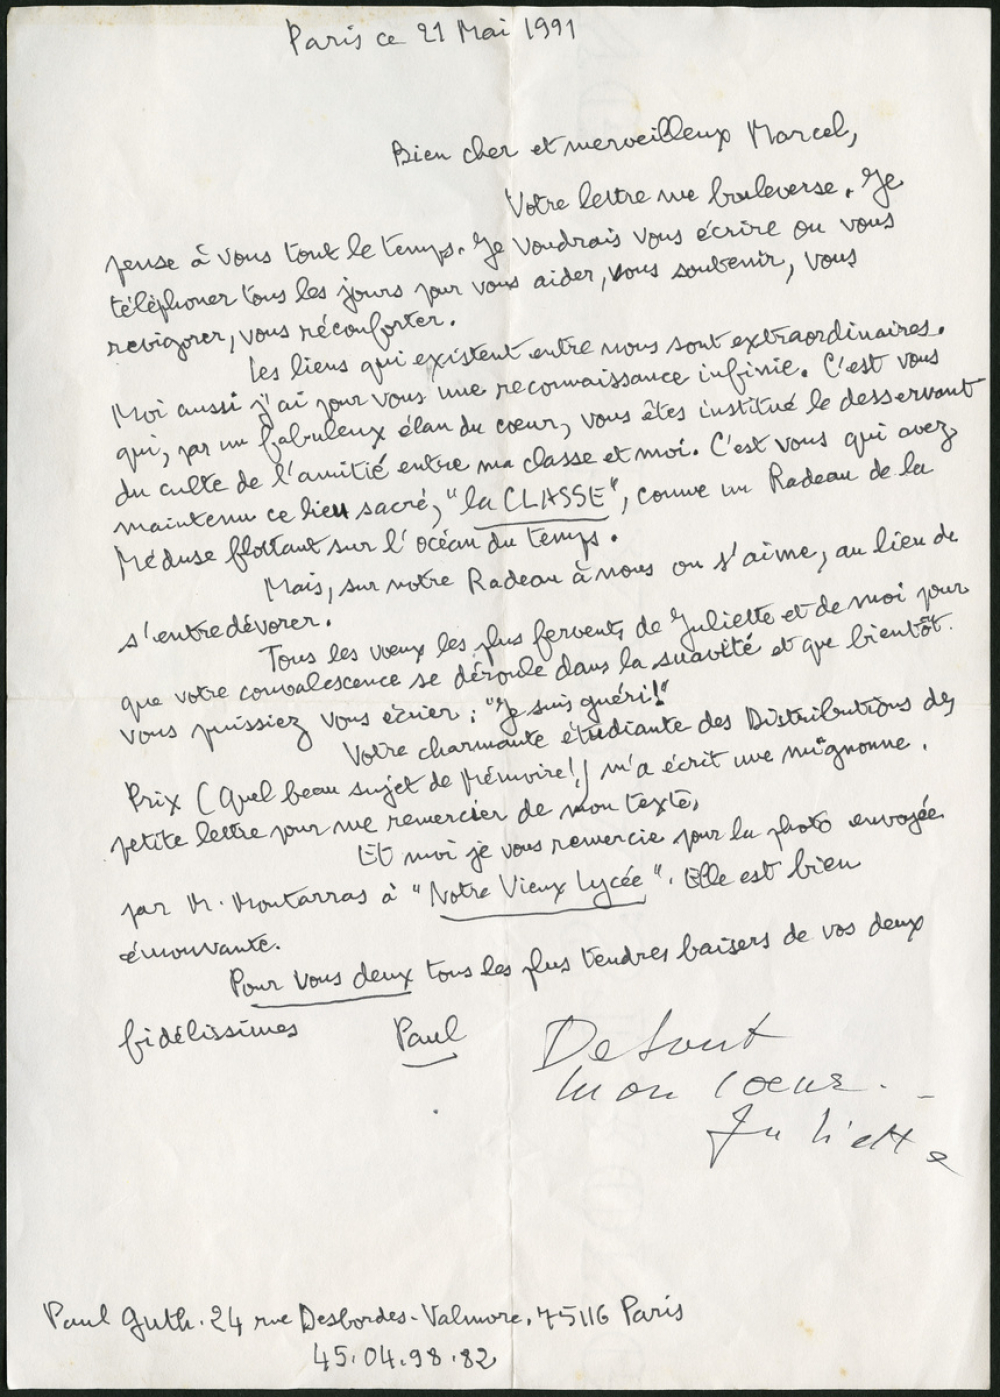 Paris ce 21 Mai 1991
Bien cher et merveilleux Marcel,
Votre lettre me bouleverse. Je
pense à vous tout le temps. Je voudrais vous écrire ou vous
téléphoner tous les jours pour vous aider, vous soutenir, vous
revigorer, vous réconforter.
Les liens qui existent entre nous sont extraordinaires.
Moi aussi j'ai pour vous une reconnaissance infinie. C'est vous
qui, par un fabuleux élan du cœur, vous êtes institué le desservant
du culte de l'amitié entre ma classe et moi. C'est vous qui avez
maintenu ce lieu sacré, "la CLASSE", comme un Radeau de la
Méduse flottant sur l'océan du temps.
Mais, sur notre Radeau à nous on s'aime, au lieu de
s'entredévorer.
Tous les vœux les plus fervents de Juliette et de moi pour
que votre convalescence se déroule dans la suavité et que bientôt
vous puissiez vous écrier : "Je suis guéri!"
Votre charmante étudiante des Distributions des
Prix (Quel beau sujet de Mémoire!) m'a écrit une mignonne
petite lettre pour me remercier de mon texte.
Et moi je vous remercie pour la photo envoyée
par M. Montarras à "Notre Vieux Lycée". Elle est bien
émouvante.
Pour vous deux tous les plus tendres baisers de vos deux
fidélissimes Paul
De tout
mon cœur.
Juliette
Paul Guth. 24 rue Desbordes-Valmore. 75116 Paris
45.04.98.82